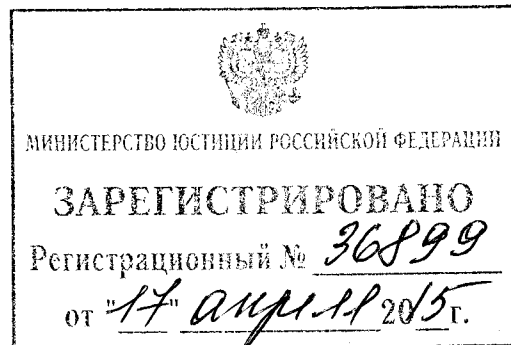 МИНИСТЕРСТВО ЮСТИЦИИ РОССИЙСКОЙ ФЕДЕРАЦИИ
ЗАРЕГИСТРИРОВАНО
Регистрационный № 36899
от "17" апреля 2015г.